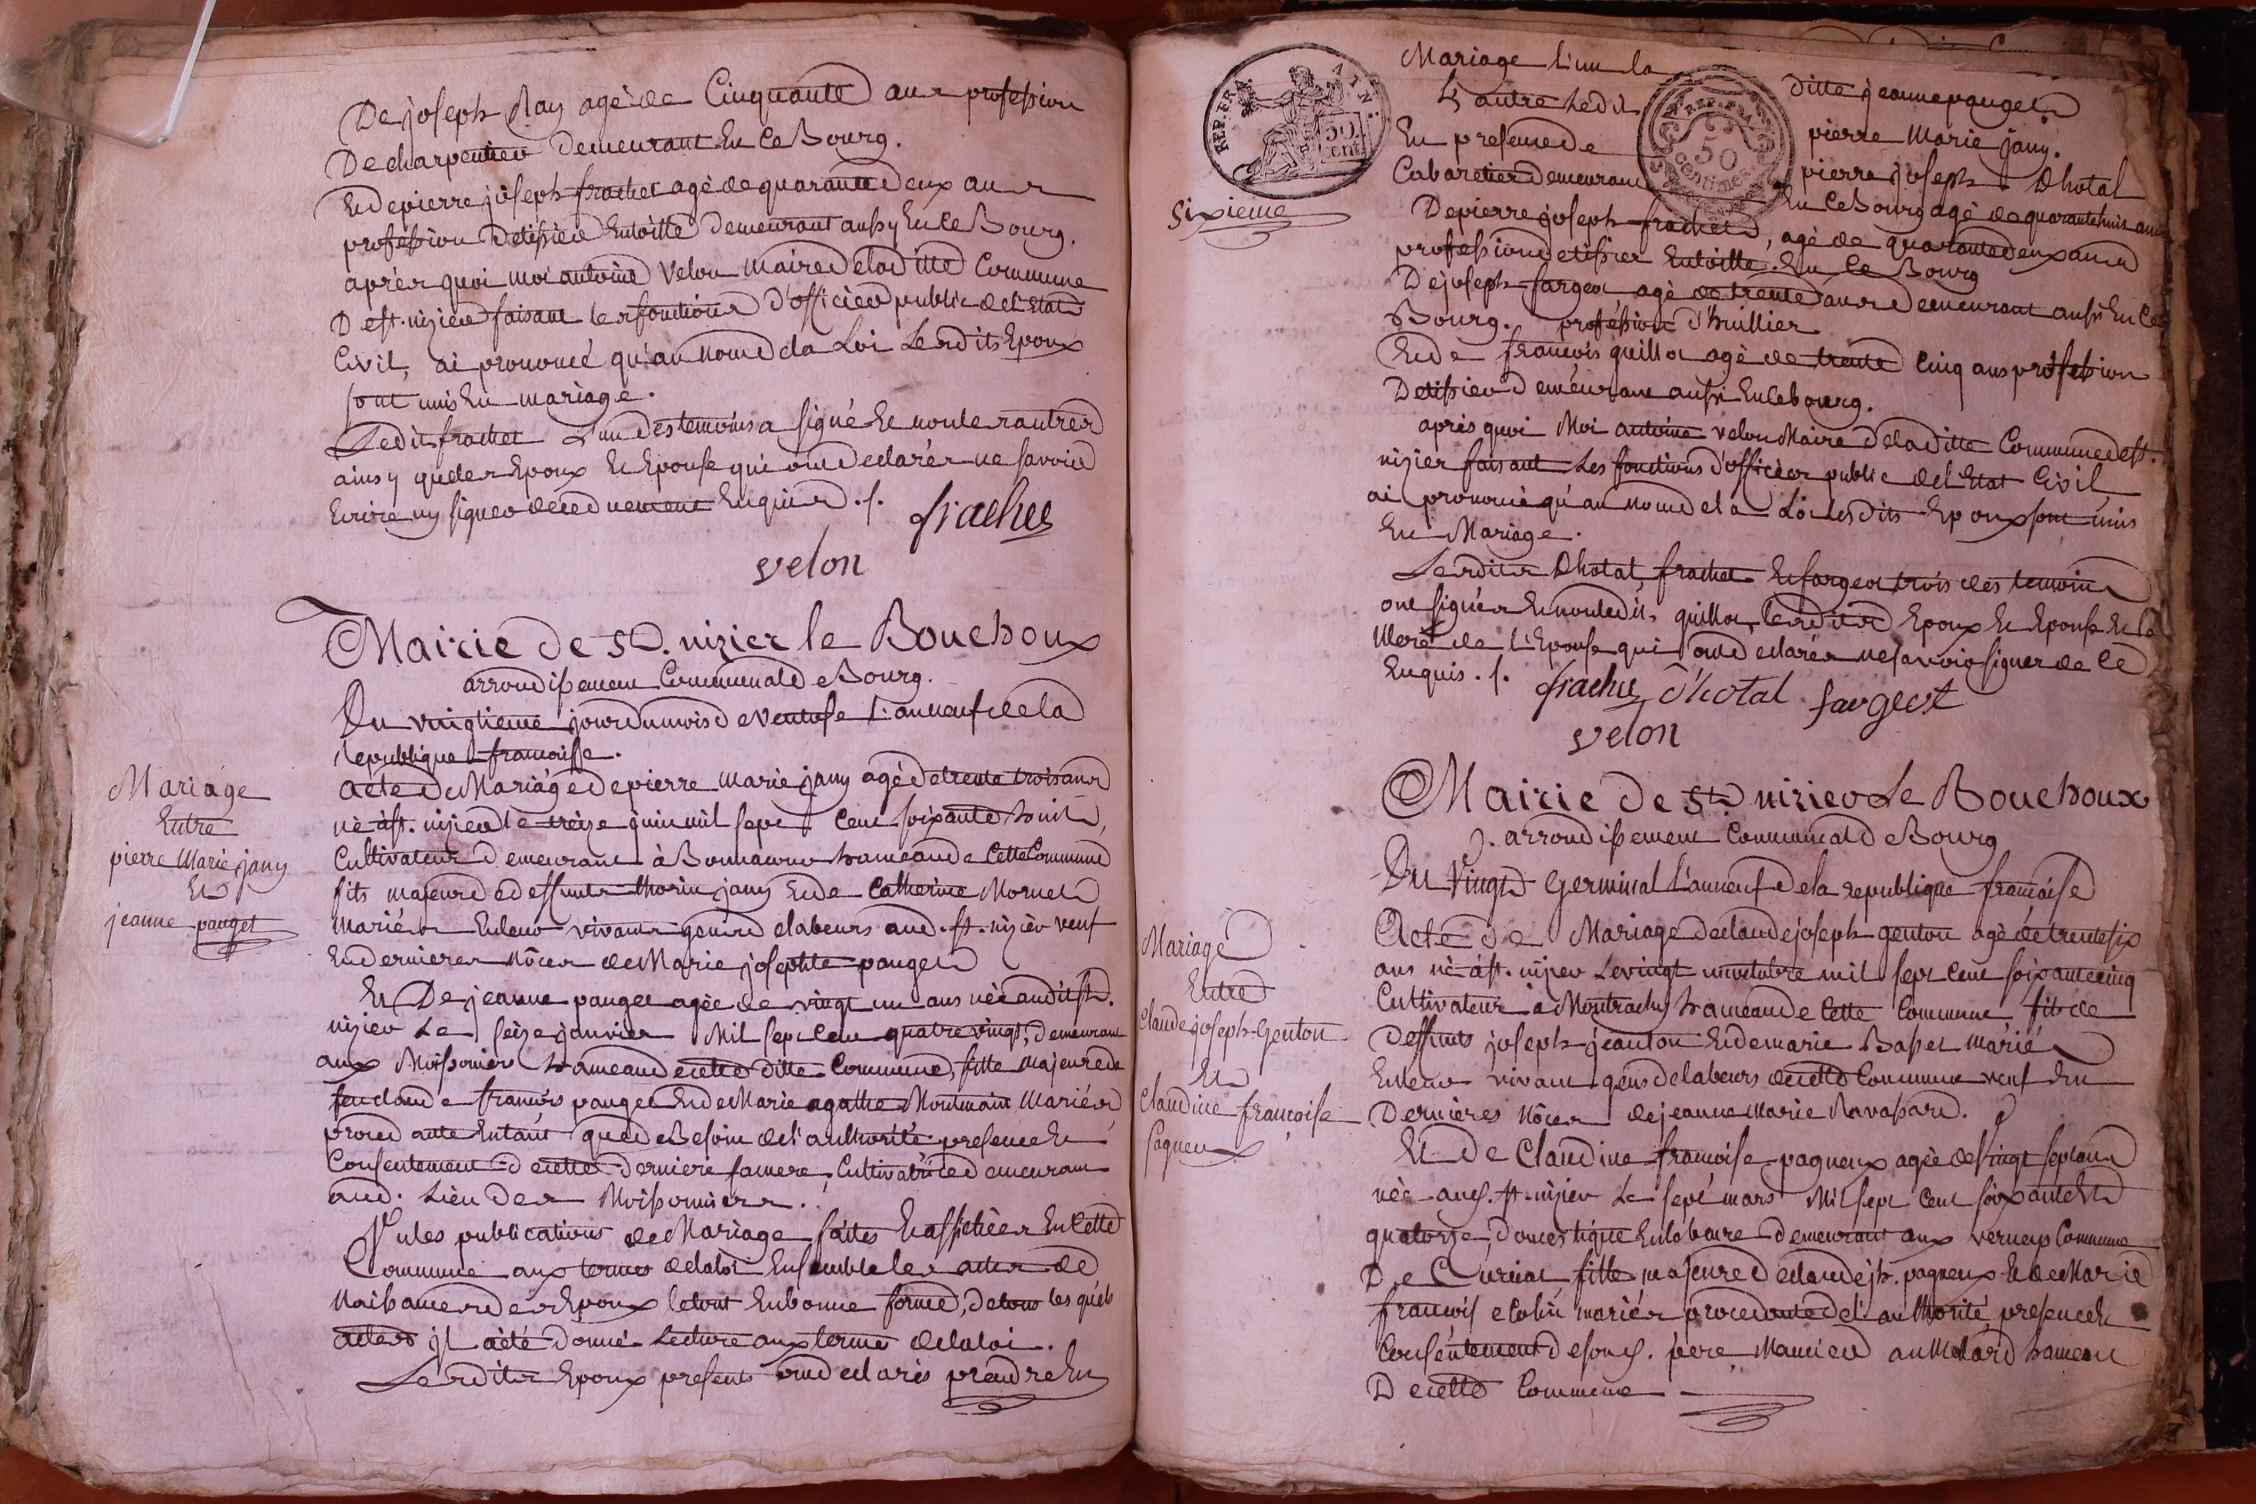 De joseph Ray agè de Cinquante ans profession
De charpentier demeurant En Ce Bourg.
Et de pierre joseph frachet agé de quarante deux ans
profession De tissier En toille demeurant aussy En Ce Bourg.
aprés quoi moi antoine Velon maire de la ditte Commune
De st. nizier faisant les fonctions d'officier public de l'Etat
Civil, ai prononcé qu'au nom de la Loi Lesdits Epoux
sont unis En mariage.
Ledit frachet L'un des temoins a signé Et non les autres
ainsy que les Epoux Et Epouse qui ont declarér ne savoir
Ecrire ny signer de ce duement Enquis ./.
frachet
velon
Mairie de St. nizier le Bouchoux
arrondissement Communal de Bourg.
Du vingtieme jour du mois de Ventose L'an neuf de la
republique francaisse.
Mariage
Entre
pierre Marie jany
Et
jeanne pauget
acte de Mariage de pierre marie jany agé de trente trois ans
né à st. nizier le treize juin mil sept Cent soixante huit,
Cultivateur demeurant à Bonnacour hameau de Cette Commune
fils majeur de deffunts thorin jany Et de Catherine Mornet
mariés En leur vivant gens de labeurs aud. st. nizier veuf
En dernieres nôces de Marie josephte pauget
Et De jeanne pauget agée de vingt un ans née audit st.
nizier Le seize janvier Mil sept Cent quatre vingt, demeurant
aux Moissonier hameau de cette ditte Commune, fille majeure de
feu claude francois pauget Et de Marie agathe Montmain Mariés
procedante Entant que de Besoin de l'authorité presence Et
Consentement de cette derniere sa mere, Cultivatrice demeurant
aud. Lieu des Moissonniers.
Vu les publications de Mariage faites Et affichées En Cette
Commune aux termes de la loi Ensemble les actes de
Naissances des Epoux le tout En bonne forme, de tous les quels
actes il a été donné Lecture aux termes de la loi.
Lesdits Epoux presents ont declarés prendre En
Mariage L'un la ditte jeanne pauget
L'autre Ledit pierre Marie jany.
REP. FRA.
50
CENT
REP. FRA.
50
centimes
En presence de pierre joseph Dhotal
Cabaretier demeurant En Ce Bourg agé de quarante huit ans
Sixieme
De pierre joseph frachet, agé de quarante deux ans
profession de tissier En toille En Ce Bourg
De joseph fargeot agé de trente ans demeurant aussi En Ce
Bourg. profession d'huillier
Et de francois guillot agé de trente Cinq ans profession
De tissier demeurant aussi En Ce bourg.
aprés quoi Moi antoine velon Maire de la ditte Commune de st.
nizier faisant Les fonctions d'officier public de l'Etat Civil
ai prononcé qu'au nom de la Loi Lesdits Epoux sont unis
En Mariage.
Lesdits Dhotal, frachet Et fargeot trois des temoins
ont signés Et non ledit guillot, lesdits Epoux Et Epouse Et la
Mere de L'Epouse qui ont declarés ne savoir signer de Ce
Enquis ./.
frachet Dhotal fargeot
velon
Mairie de St. nizier Le Bouchoux
arrondissement Communal de Bourg
Du Vingt Germinal L'an neuf de la republique francaise
Mariage
Entre
Claude joseph Genton
Et
Claudine francoise
pagneux
Acte de Mariage de claude joseph genton agé de trente six
ans né à st. nizier Le vingt un octobre mil sept Cent soixante cinq
Cultivateur à Montrachy hameau de Cette Commune fils de
deffunts joseph jeanton Et de marie Basset marié
En leur vivant gens de labeurs de cette Commune veuf En
Dernieres nôces de jeanne Marie Ravassard.
Et De Claudine francoise pagneux agée de Vingt sept ans
née aud. st. nizier Le sept mars Mil sept Cent soixante Et
quatorze, domestique En labeure demeurant aux vernes Commune
De Curciat fille majeure de claude jh. pagneux Et de Marie
francoise Colin mariés procedante de l'authorité presence Et
Consentement de soud. pere Maneur au Mollard hameau
De cette Commune